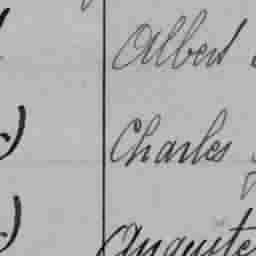 Albert
Charles
Auguste